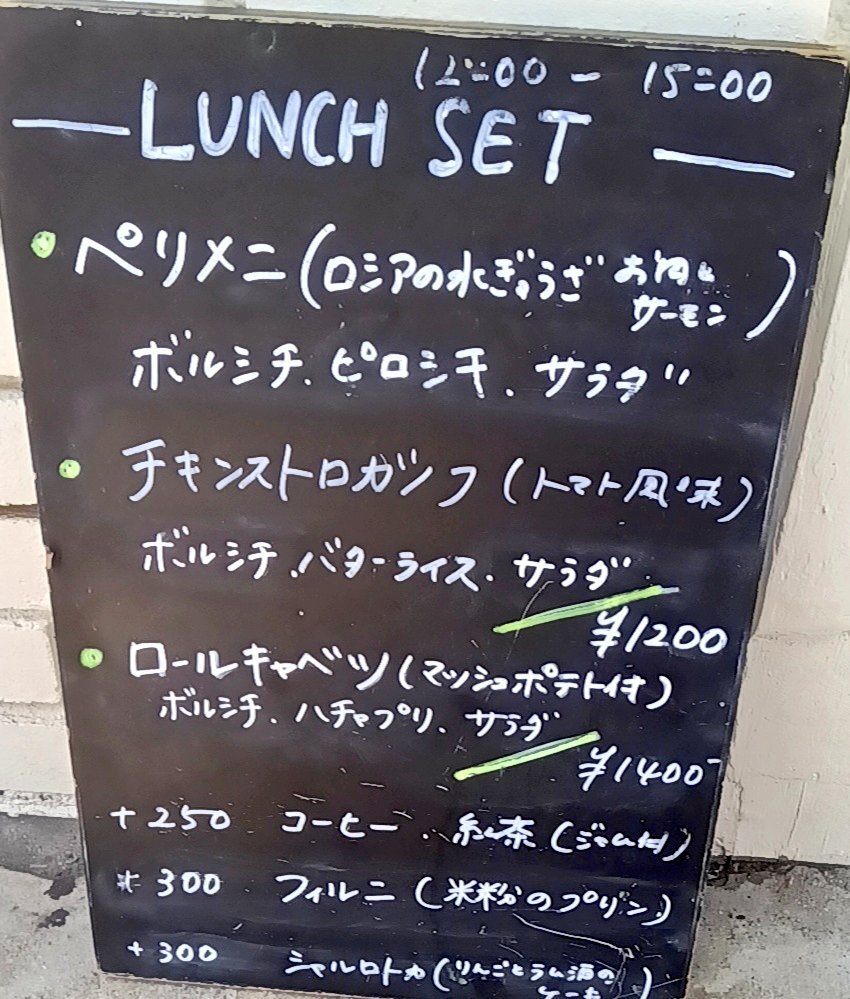 12:00 - 15:00
LUNCH SET
ペリメニ(ロシアの水ぎょうざ お肉と
サーモン)
ボルシチ、ピロシキ、サラダ
チキンストロガノフ(トマト風味)
ボルシチ、バターライス、サラダ
¥1200
ロールキャベツ(マッシュポテト付)
ボルシチ、ハチャプリ、サラダ
¥1400-
+250 コーヒー、紅茶(ジャム付)
+300 フィルニ(米粉のプリン)
+300 シャルロトカ(りんごとラム酒の
ケーキ)